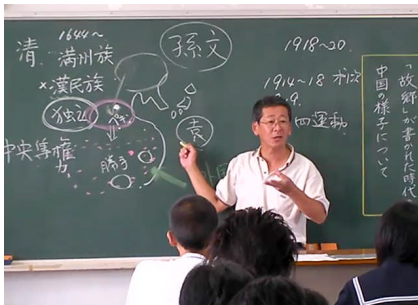 1644～
清.
満州族
×漢民族
独立
中央集権
力
勝手
孫文
袁
1918～20.
1914～18
四運動
「故郷」が書かれた時代
中国の様子について